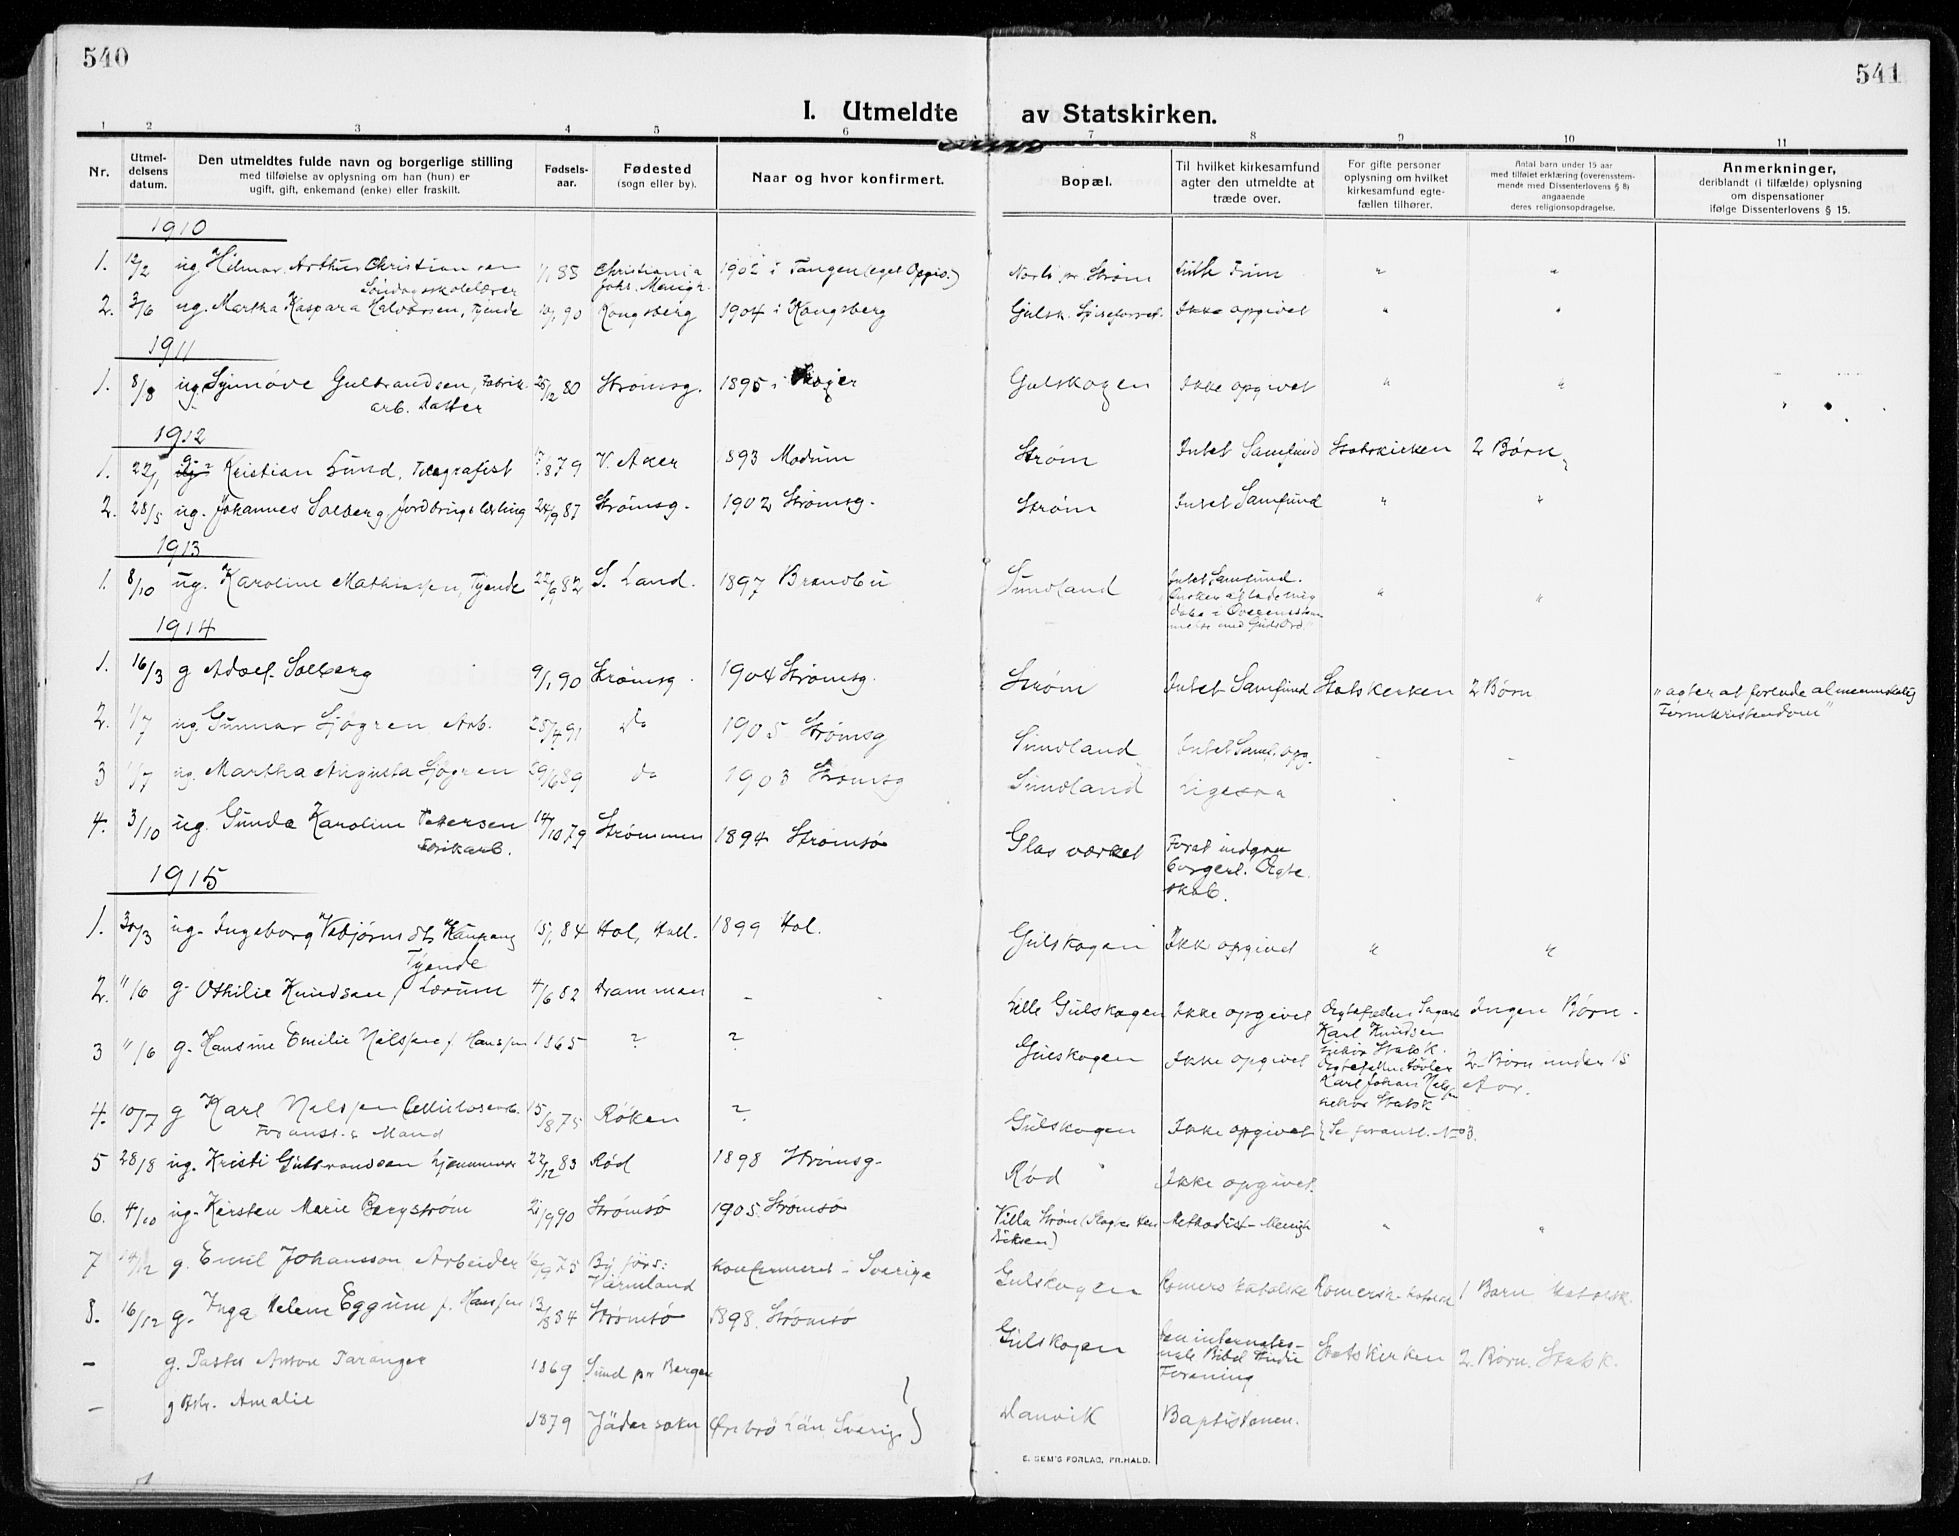 540
541
I. Utmeldte av Statskirken.
1 2 3 4 5 6 7 8 9 10 11
Nr.
Utmel-
delsens
datum.
Den utmeldtes fulde navn og borgerlige stilling
med tilføielse av oplysning om han (hun) er
ugift, gift, enkemand (enke) eller fraskilt.
Fødsels-
aar.
Fødested
(sogn eller by).
Naar og hvor konfirmert.
Bopæl.
Til hvilket kirkesamfund
agter den utmeldte at
træde over.
For gifte personer
oplysning om hvilket
kirkesamfund egte-
fællen tilhører.
Antal barn under 15 aar
med tilføiet erklæring (overensstem-
mende med Dissenterlovens § 8)
angaaende
deres religionsopdragelse.
Anmerkninger,
deriblandt (i tilfælde) oplysning
om dispensationer
ifølge Dissenterlovens § 15.
1910
1. 12/2 ug Hilmar Arthur Christiansen 88 Christiania 1902 i Tangen (eget Opgiv.) pr Strøm " "
Søndagsskolelærer Joh. Menigh.
2. 3/6 ug. Martha Kaspara Halvorsen, Tjende 90 Kongsberg 1904 i Kongsberg Gulsk. Ikke opgivet " "
1911
1. 8/8 ug. Synnøve Gulbrandsen, Fabrik 25/12 80 Strømsg. 1895 i Skoger Gulskogen Ikke opgivet " "
arb. Datter
1912
1. 22/1 g. Kristian Lund, Telegrafist 79 V. Aker 1893 Modum Strøm Intet Samfund Statskirken 2 Børn
2. 28/5 ug. Johannes Solberg 24/9 87 Strømsg. 1902 Strømsg. Strøm Intet Samfund " "
1913
1. 8/10 ug. Karoline Mathiassen, Tjende 82 S. Land. 1897 Brandbu Sundland Intet Samfund. " "
i Overensstem
melse med Guds Ord.
1914
1. 16/3 g Adolf Solberg 9/1 90 Strømsg. 1904 Strømsg. Strøm Intet Samfund Statskirken 2 Børn "agter at forende almenmeskelig
Fornkristendom"
2. 1/7 ug. Gunnar Sjøgren Arb. 91 do 1905 Strømsg Sundland Intet Samf. opg.
3 1/7 ug. Martha Augusta Sjøgren 29/6 89 do 1903 Strømsg Sundland Ligesaa
4. 3/10 ug. Gunda Karoline Petersen 14/10 79 Strømmen 1894 Strømsø Glasværket Forat indgaa
Fabrikarb. borgerl. Ægte
skab.
1915
1. 30/3 ug. Ingeborg Vebjørnsdt. Kaupang 84 Hol, Hall. 1899 Hol. Gulskogen Ikk opgivet " "
Tjende
2. 11/6 g. Othilie Knudsen f Lerum 4/6 82 Drammen - Lille Gulskogen Ikke opgivet Ægtefællen Ingen Børn.
Karl Knudsen
3 11/6 g. Hansine Emilie Nilssen f Hanssen 1865 ? ? Gulskogen Ikke opgivet 2 Børn under 15
Karl Johan Nilssen Aar.
4. 10/7 g Karl Nilssen 15/8 75 Røken ? Gulskogen Ikke opgivet Se foranst. No 3.
Foranst.s Mand
5 28/8 ug. Kristi Gulbrandsen hjemmevær 22/12 83 Rød 1898 Strømsg. Rød Ikke opgivet.
6. 4/10 ug. Kirsten Marie Bergstrøm 21/9 90 Strømsø 1905 Strømsø Villa Strøm Methodist-Menigh " "
7 14/12 g. Emil Johansson Arbeider 16/9 75 By førs: Konfirmeret i Sverige Gulskogen Romersk katolske Romersk katolsk 1 Barn katolsk.
Värmland
8. 16/12 g. Inga Helene Eggum f. Hanssen 13/8 84 Strømsø 1898. Strømsø Gulskogen Den internatio-
nale Bibel Studie
Forening Statskirken 2 Børn. Statsk.
- g. Pastor Anton Taranger 1869 Sund pr Bergen
- g Amalie 1879 Jäder sokn (Örebrö Län, Sverige) Danvik Baptisterne.
E. SEM'S FORLAG, FR.HALD.